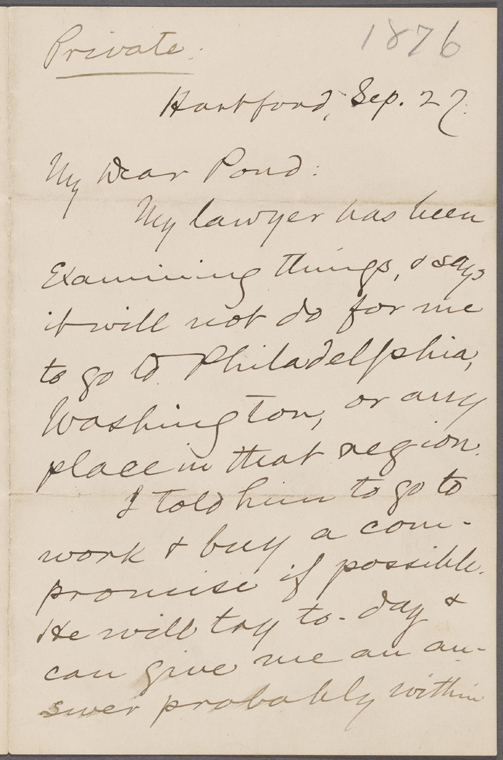 Private.
1876
Hartford, Sep. 27.
My Dear Pond:
My lawyer has been
examining things, & says
it will not do for me
to go to Philadelphia,
Washington, or any
place in that region.
I told him to go to
work & buy a com-
promise if possible.
He will try to-day &
can give me an an-
swer probably within